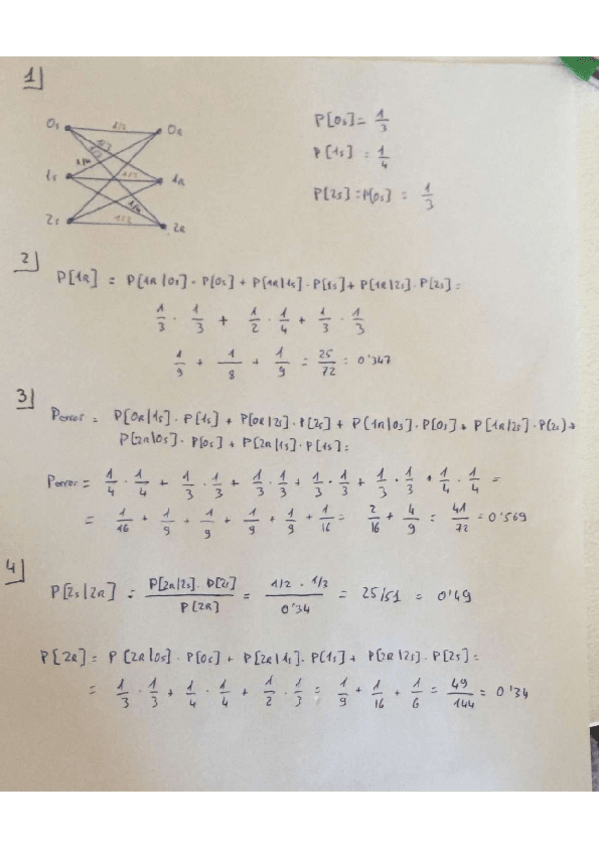 1)
0s 1/2 0R P[0s] = 1/3
1/3
1/3
1/4
1s 1/2 1R P[1s] = 1/4
1/4
2s 1/2 2R P[2s] = P[0s] = 1/3
2)
P[1R] = P[1R|0s] · P[0s] + P[1R|1s] · P[1s] + P[1R|2s] · P[2s] =
1/3 · 1/3 + 1/2 · 1/4 + 1/3 · 1/3
1/9 + 1/8 + 1/9 = 25/72 = 0'347
3)
Perror = P[0R|1s] · P[1s] + P[0R|2s] · P[2s] + P[1R|0s] · P[0s] + P[1R|2s] · P[2s] +
P[2R|0s] · P[0s] + P[2R|1s] · P[1s] =
Perror = 1/4 · 1/4 + 1/3 · 1/3 + 1/3 · 1/3 + 1/3 · 1/3 + 1/3 · 1/3 + 1/4 · 1/4 =
= 1/16 + 1/9 + 1/9 + 1/9 + 1/9 + 1/16 = 2/16 + 4/9 = 41/72 = 0'569
4)
P[2s|2R] = P[2R|2s] · P[2s] / P[2R] = 1/2 · 1/3 / 0'34 = 25/51 = 0'49
P[2R] = P[2R|0s] · P[0s] + P[2R|1s] · P[1s] + P[2R|2s] · P[2s] =
= 1/3 · 1/3 + 1/4 · 1/4 + 1/2 · 1/3 = 1/9 + 1/16 + 1/6 = 49/144 = 0'34